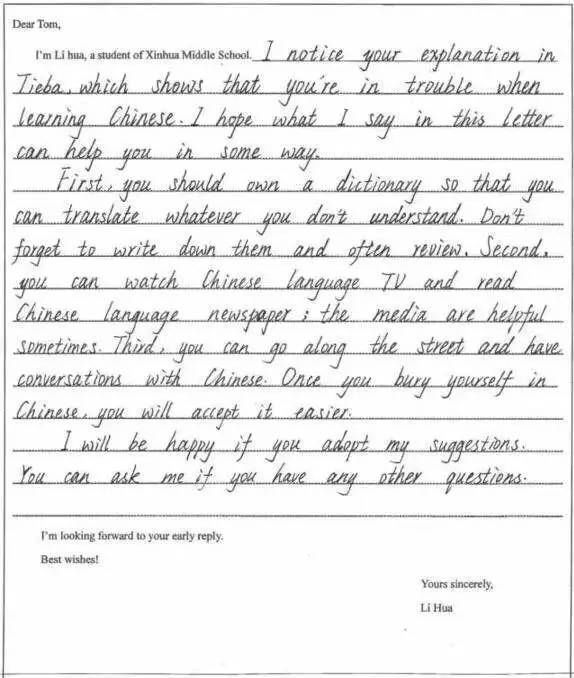 Dear Tom,
I'm Li hua, a student of Xinhua Middle School. I notice your explanation in
Tieba, which shows that you're in trouble when
learning Chinese. I hope what I say in this letter
can help you in some way.
First, you should own a dictionary so that you
can translate whatever you don't understand. Don't
forget to write down them and often review. Second,
you can watch Chinese language TV and read
Chinese language newspaper; the media are helpful
sometimes. Third, you can go along the street and have
conversations with Chinese. Once you bury yourself in
Chinese, you will accept it easier.
I will be happy if you adopt my suggestions.
You can ask me if you have any other questions.
I'm looking forward to your early reply.
Best wishes!
Yours sincerely,
Li Hua